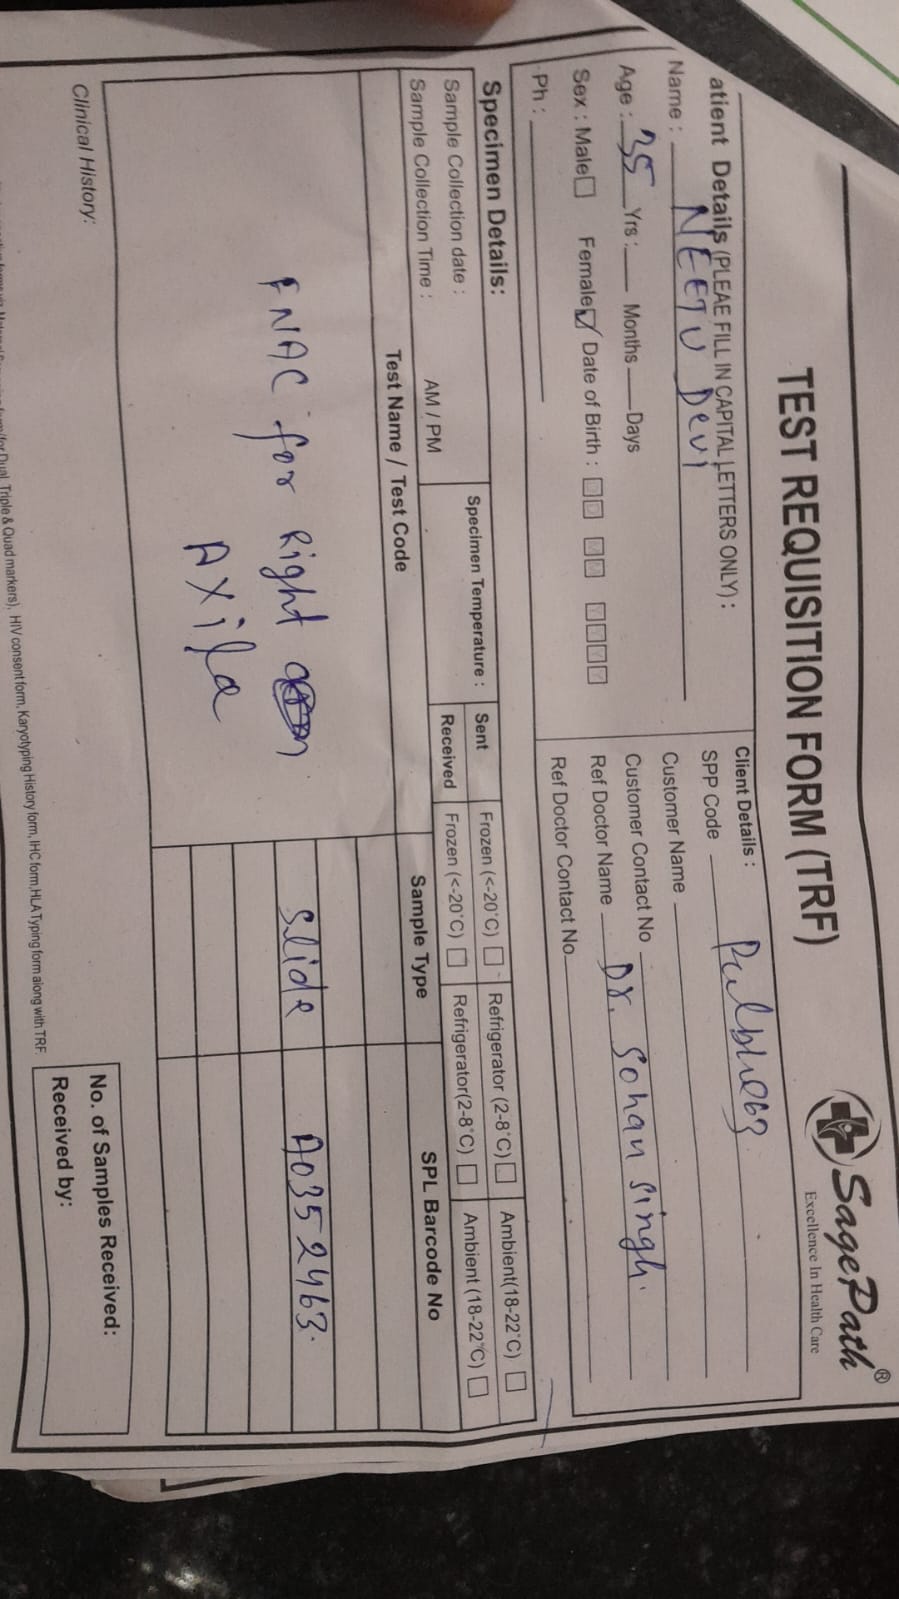 TEST REQUISITION FORM (TRF)
SagePath®
Excellence In Health Care
atient Details (PLEAE FILL IN CAPITAL LETTERS ONLY) :
Name : NEETU Devi
Age : 35 Yrs : Months Days
Sex : Male Female Date of Birth : DD MM YYYY
Ph :
Client Details :
SPP Code
Customer Name
Customer Contact No
Ref Doctor Name Dr. Sohan Singh.
Ref Doctor Contact No
Specimen Details:
Sample Collection date :
Sample Collection Time : AM / PM
Specimen Temperature :
Sent Frozen (<-20°C) Refrigerator (2-8°C) Ambient(18-22°C)
Received Frozen (<-20°C) Refrigerator(2-8°C) Ambient (18-22°C)
Test Name / Test Code Sample Type SPL Barcode No
FNAC for Right
Axila
Slide A0352463.
Clinical History:
Dual, Triple & Quad markers), HIV consent form, Karyotyping History form, IHC form, HLA Typing form along with TRF.
No. of Samples Received:
Received by: